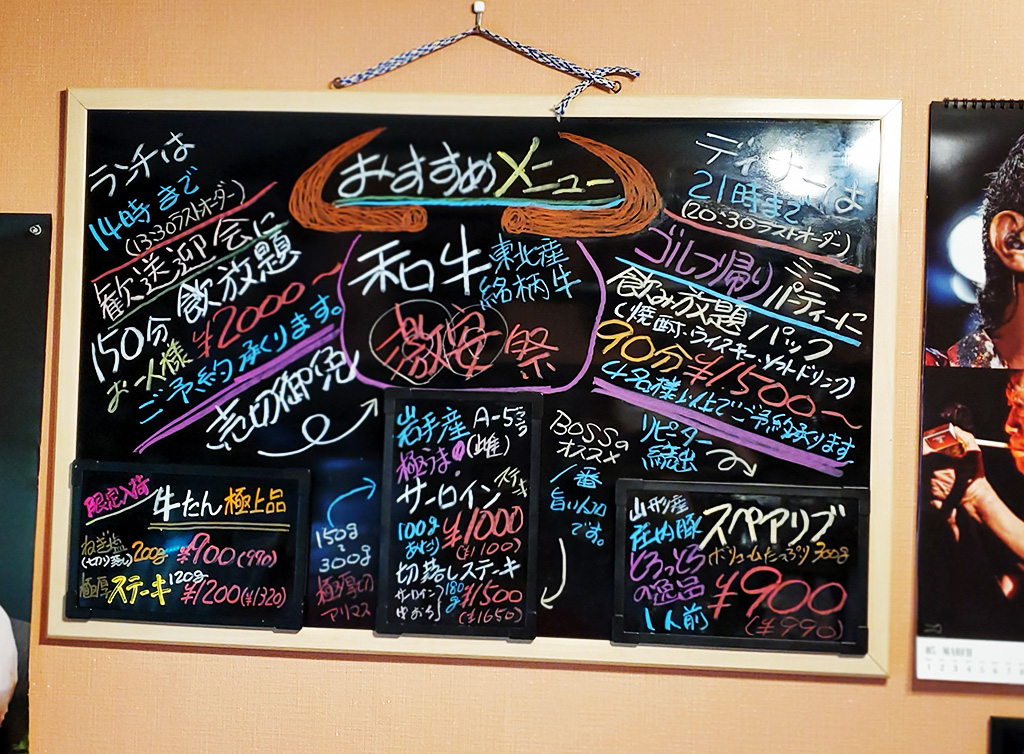 おすすめメニュー
ランチは
14時まで
(13:30ラストオーダー)
歓送迎会に
150分 飲放題
お一人様 ¥2000〜
ご予約承ります。
売切御免
和牛 東北産
銘柄牛
激安祭
ディナーは
21時まで
(20:30ラストオーダー)
ゴルフ帰り ミニ
パーティーに
飲み放題 パック
(焼酎・ウイスキー・ソフトドリンク)
90分 ¥1500〜
4名様以上でご予約承ります
リピーター
続出
BOSSの
オススメ
一番
旨い人口
です。
限定入荷 牛たん 極上品
ねぎ塩
(切り落し) 200g ¥900 (990)
極厚 ステーキ 120g ¥1200 (¥1320)
150g
〜
300g
極厚切
アリマス
岩手産 A-5
極うま! (雌)
サーロイン ステーキ
100g
あたり ¥1000
(¥1100)
切落しステーキ
サーロイン
180g ¥1500
(¥1650)
山形産
庄内豚 スペアリブ
とろっとろ ボリュームたっぷり 300g
の逸品 ¥900
1人前 (¥990)